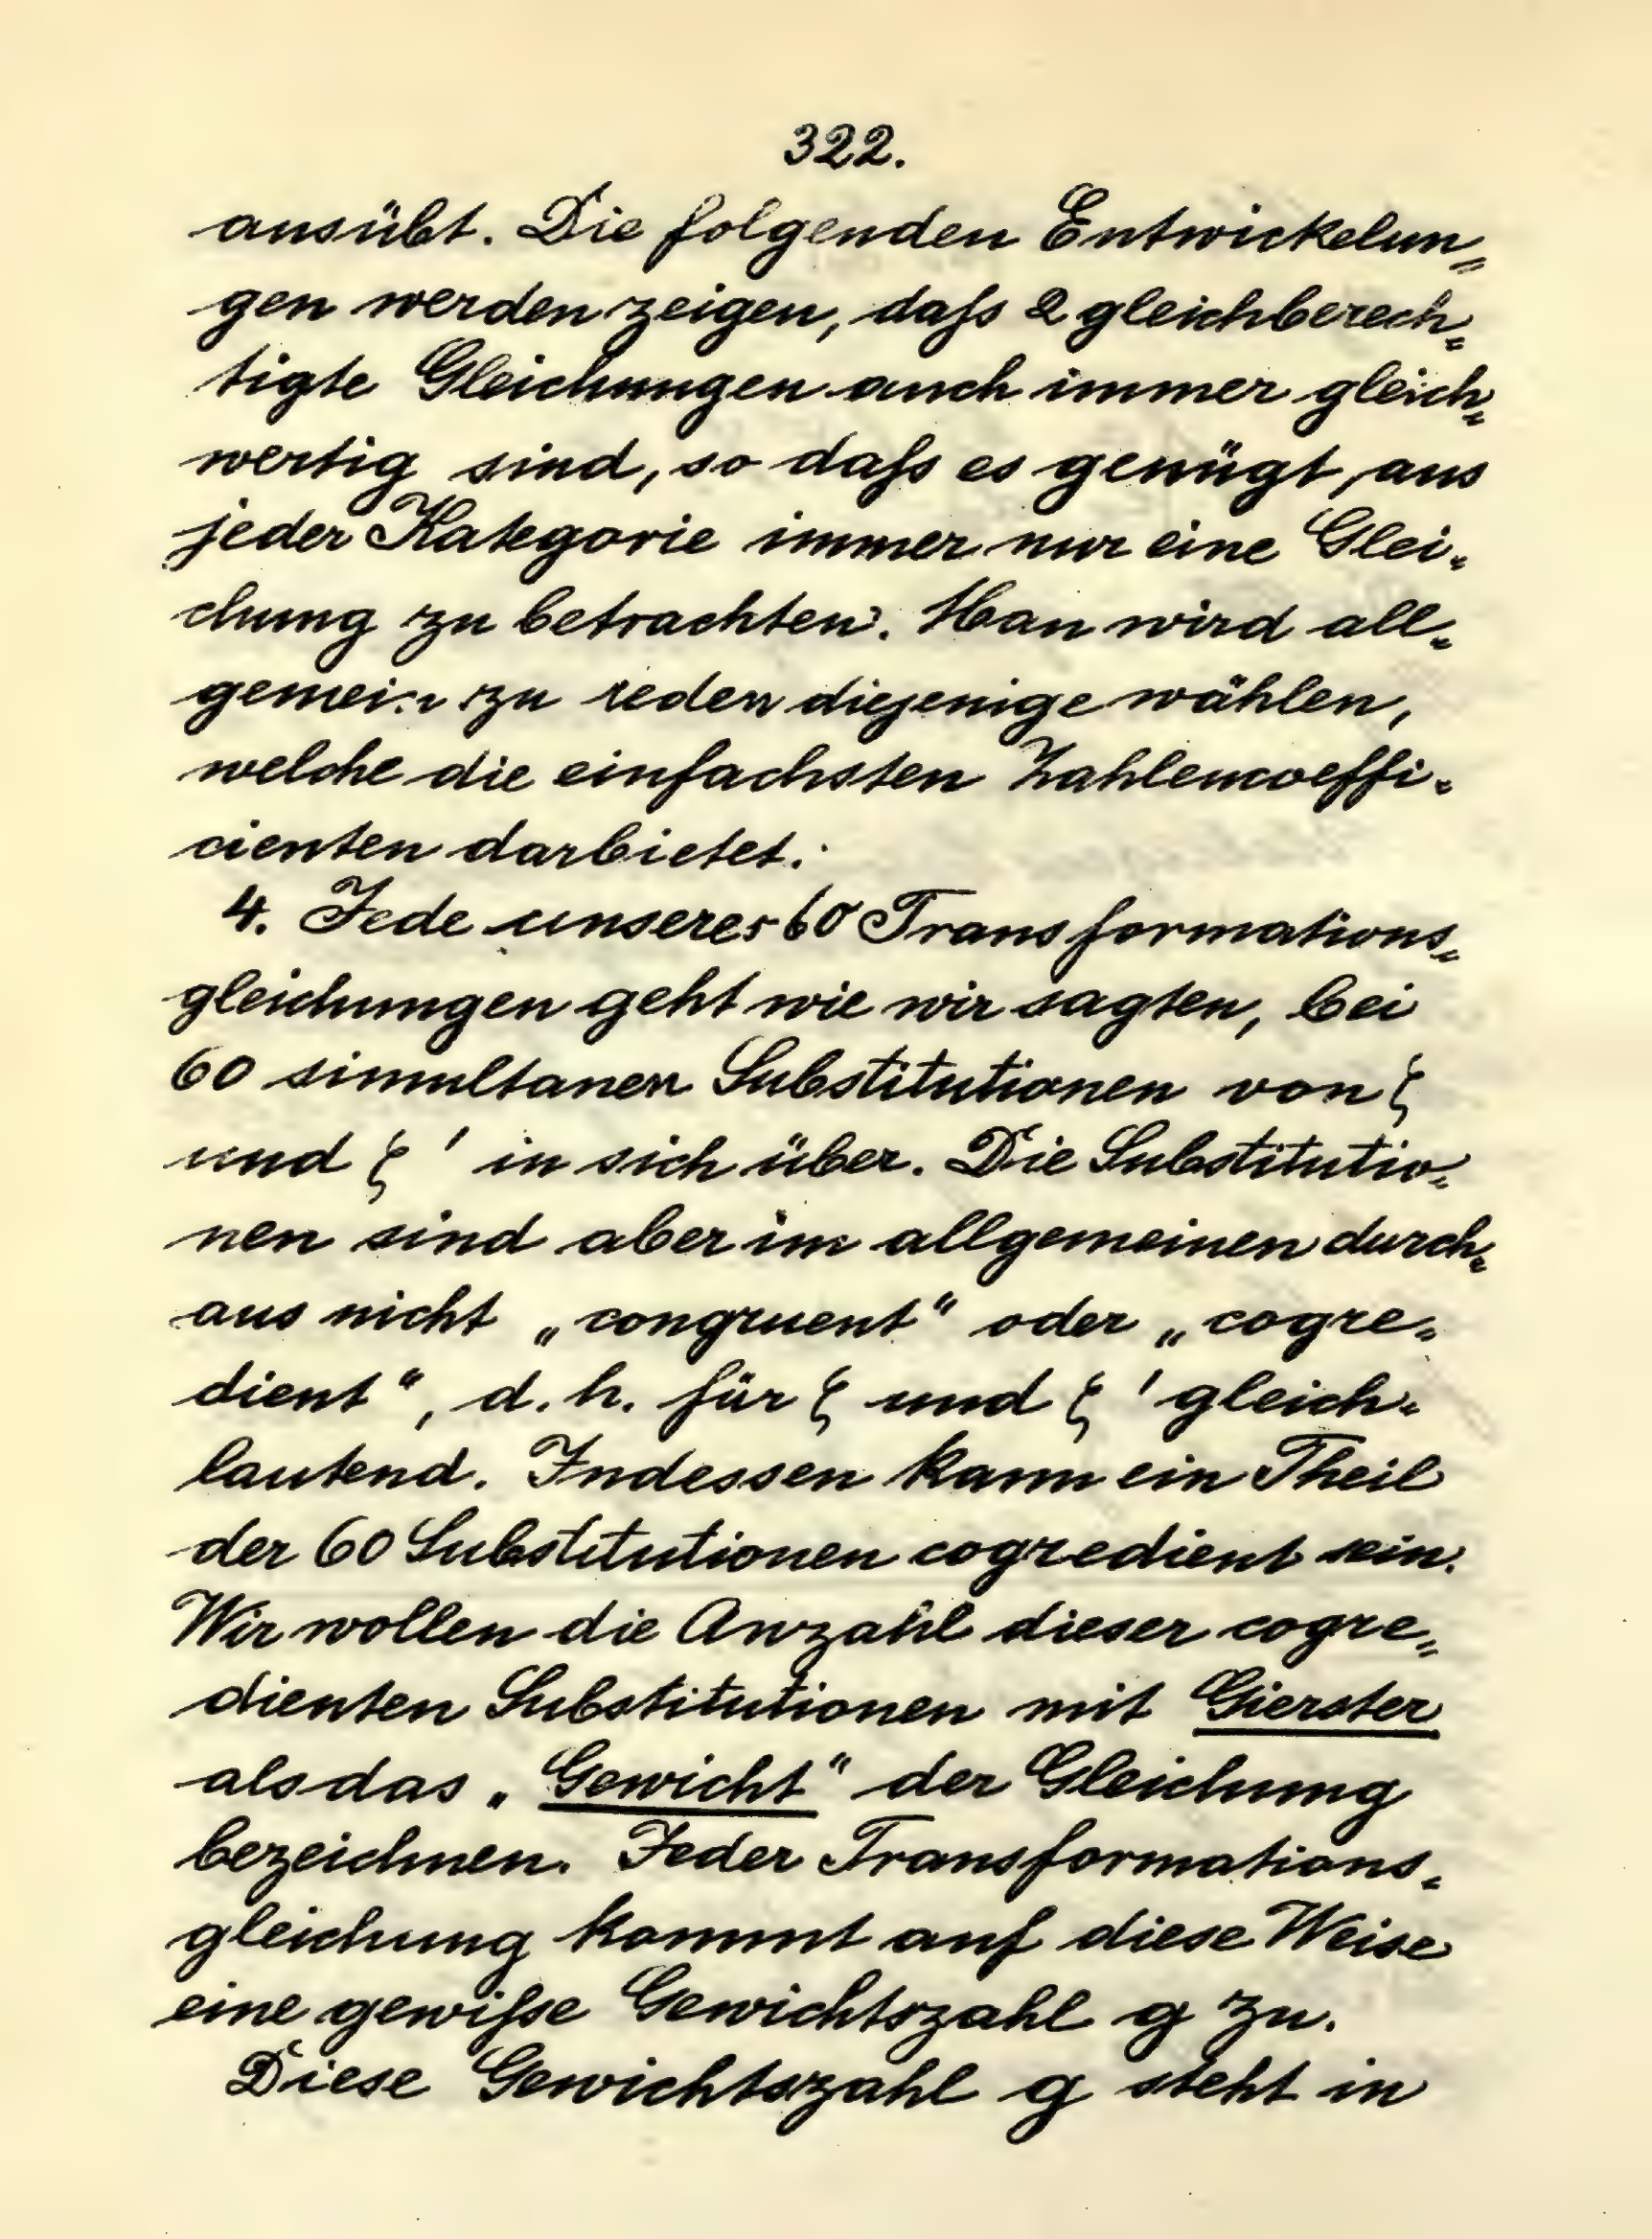 322.
ausübt. Die folgenden Entwickelun„
gen werden zeigen, daſs 2 gleichberech„
tigte Gleichungen auch immer gleich„
wertig sind, so daſs es genügt, aus
jeder Kategorie immer nur eine Glei„
chung zu betrachten. Man wird all„
gemein zu reden diejenige wählen,
welche die einfachsten Zahlencoeffi„
cienten darbietet.
4. Jede unserer 60 Transformations„
gleichungen geht wie wir sagten, bei
60 simultanen Substitutionen von ζ
und ζ' in sich über. Die Substitutio„
nen sind aber im allgemeinen durch„
aus nicht „congruent“ oder „cogre„
dient“, d. h. für ζ und ζ' gleich„
lautend. Indessen kann ein Theil
der 60 Substitutionen cogredient sein.
Wir wollen die Anzahl dieser cogre„
dienten Substitutionen mit Gierster
als das „Gewicht“ der Gleichung
bezeichnen. Jeder Transformations„
gleichung kommt auf diese Weise
eine gewiſse Gewichtszahl g zu.
Diese Gewichtszahl g steht in